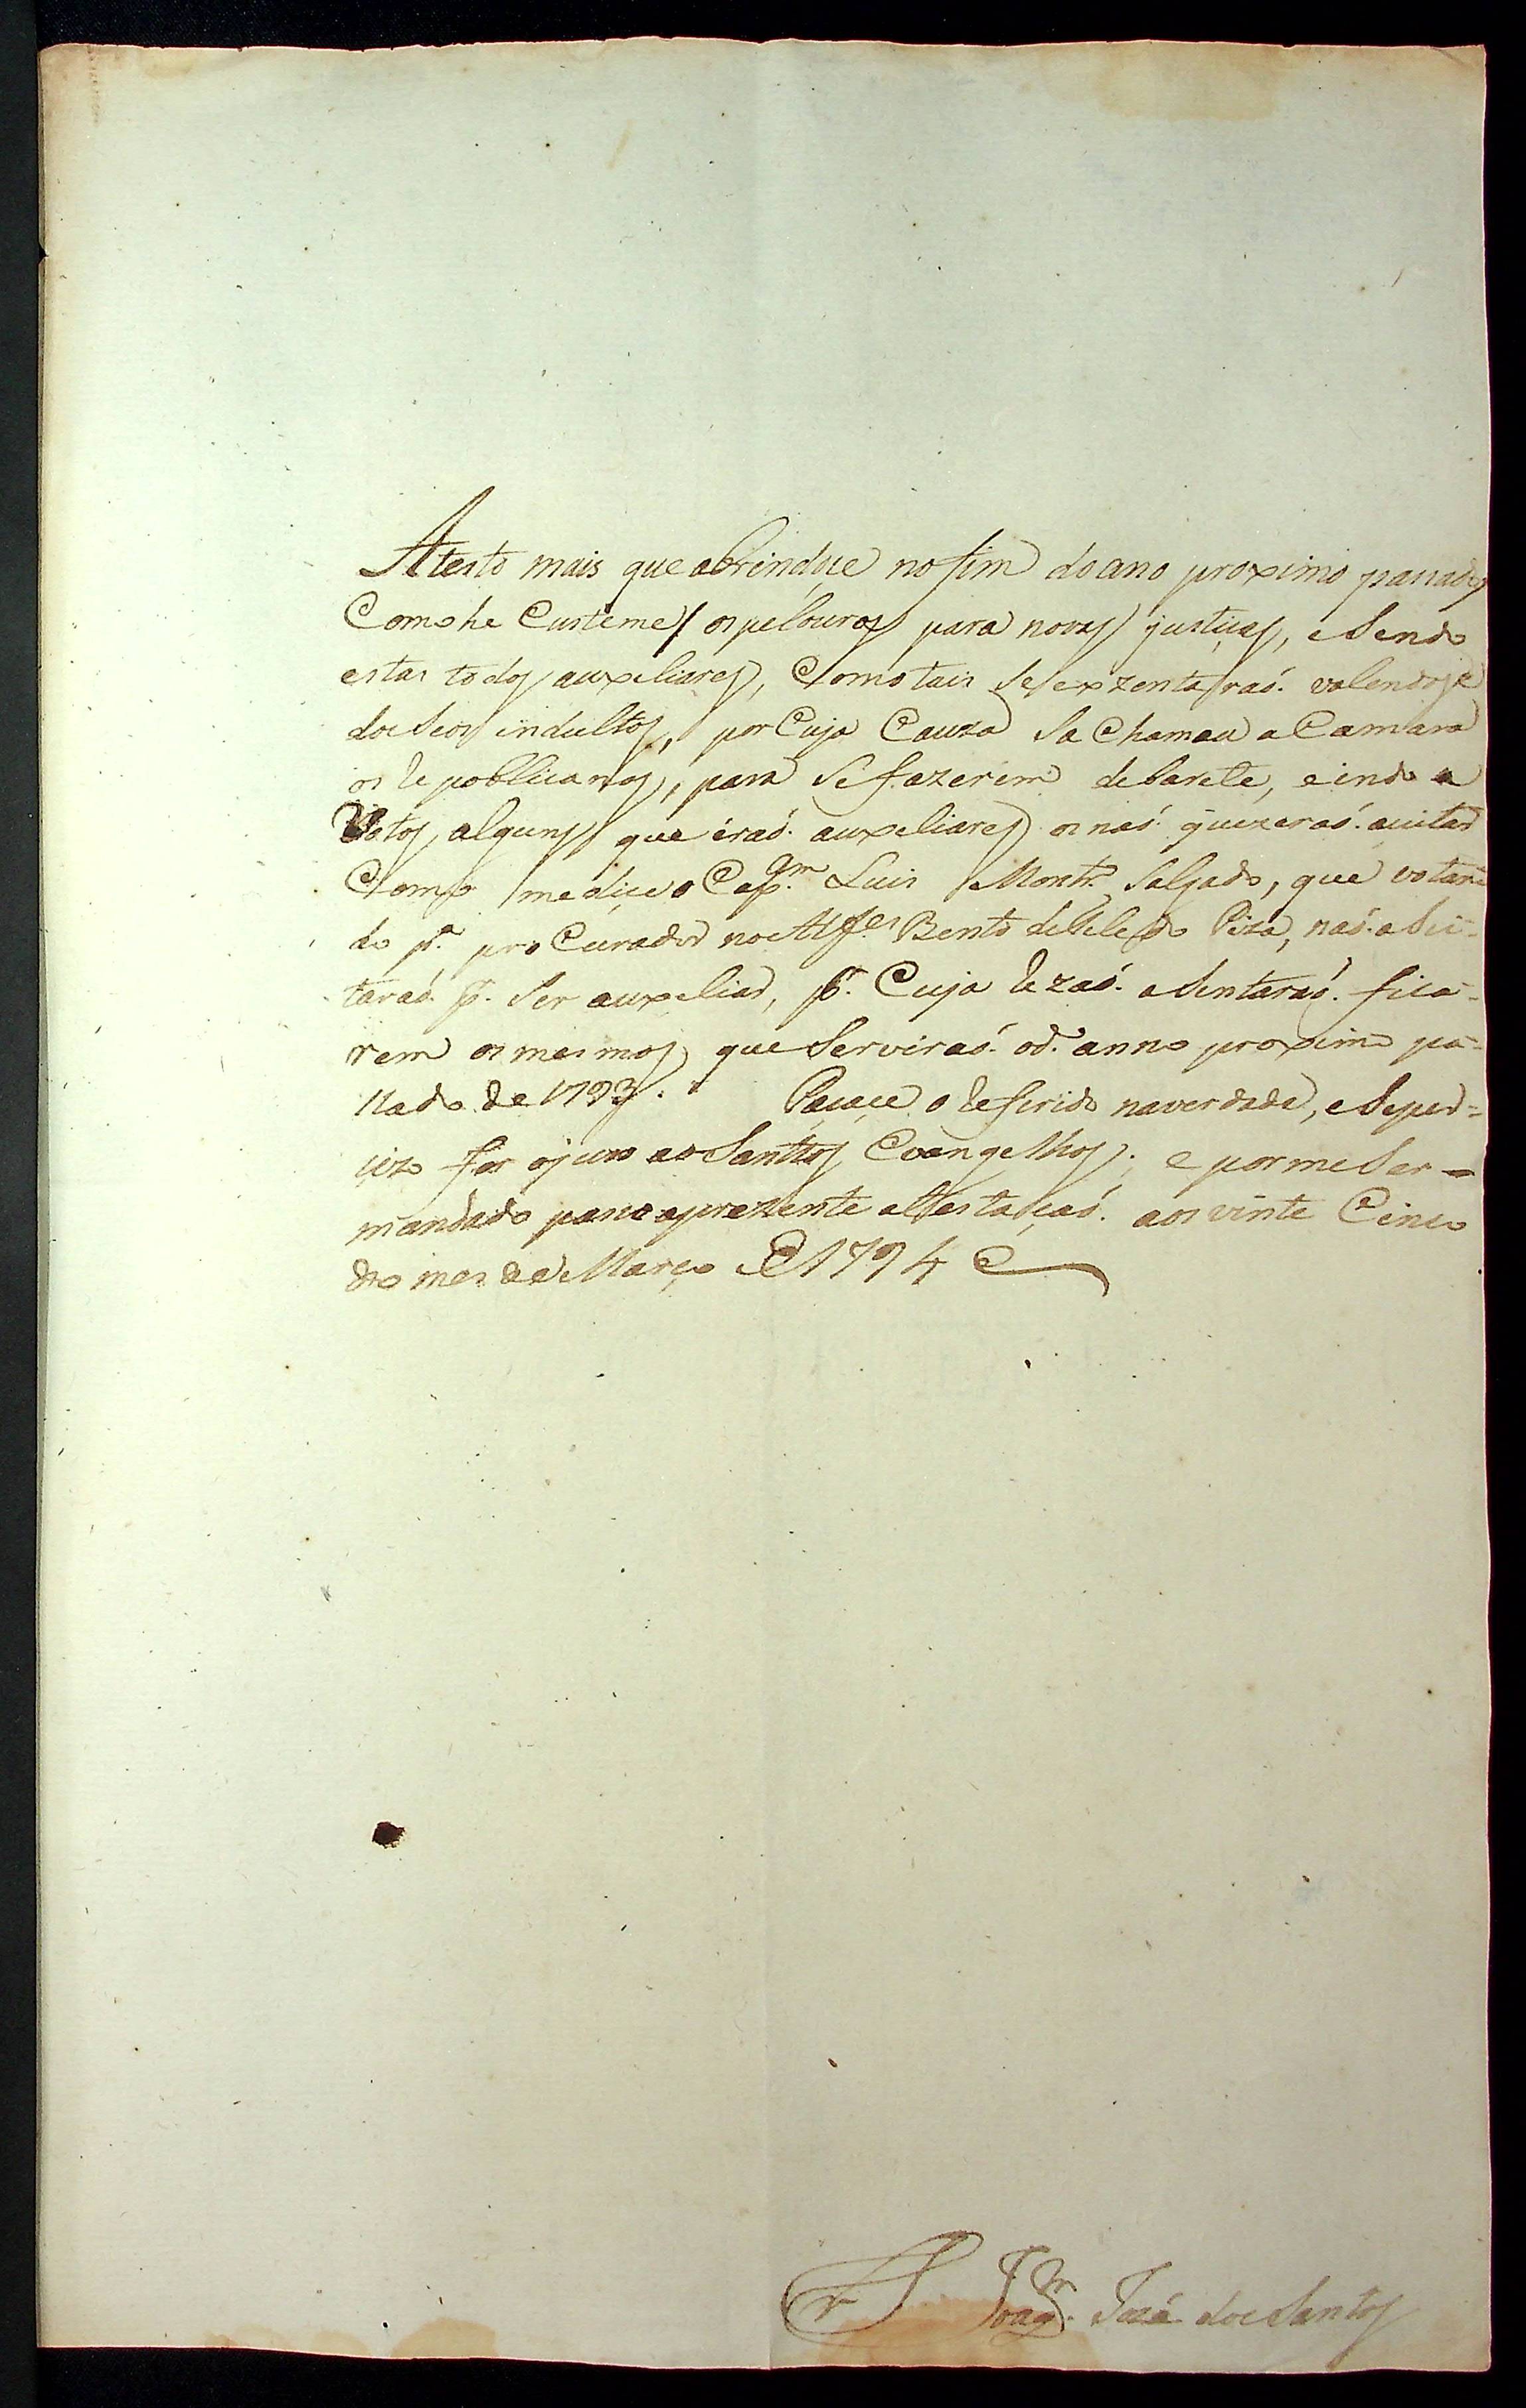 Atesto mais que abrindoce no fim do ano proximo passado,
Como he Custeme/ os pelouros para novas justiças, e Sendo
estas todos auxeliares, Como tais Se exzentaraó. valendose
do Seos indultos, por Cuja Cauza Sa Chamou a Camara
os Repoblicanos, para Se fazerem debarete, e indo a
Votos, alguns que éraó. auxeliares os naó quezeraó. aceitar
Como me dice o Cap.am Luis Montr.o Salgado, que votan
do p.a pro Curador no Alferes Bento de Toledo Piza, naó. aSei-
taraó. p.r Ser auxeliar, p.r Cuja Rezaó. aSentaraó. fica-
rem os mesmos que Serviraó. o d.o anno proximo pa-
ssado de 1793. Paçace o Referido na verdade, e Sepre-
cizo for o juro aos Santtos Evangelhos; e por me Ser
mandado passo a prezente attestaçaó. aos vinte Cinco
do mes de Março de 1794
Joaq.m Jozé dos Santos